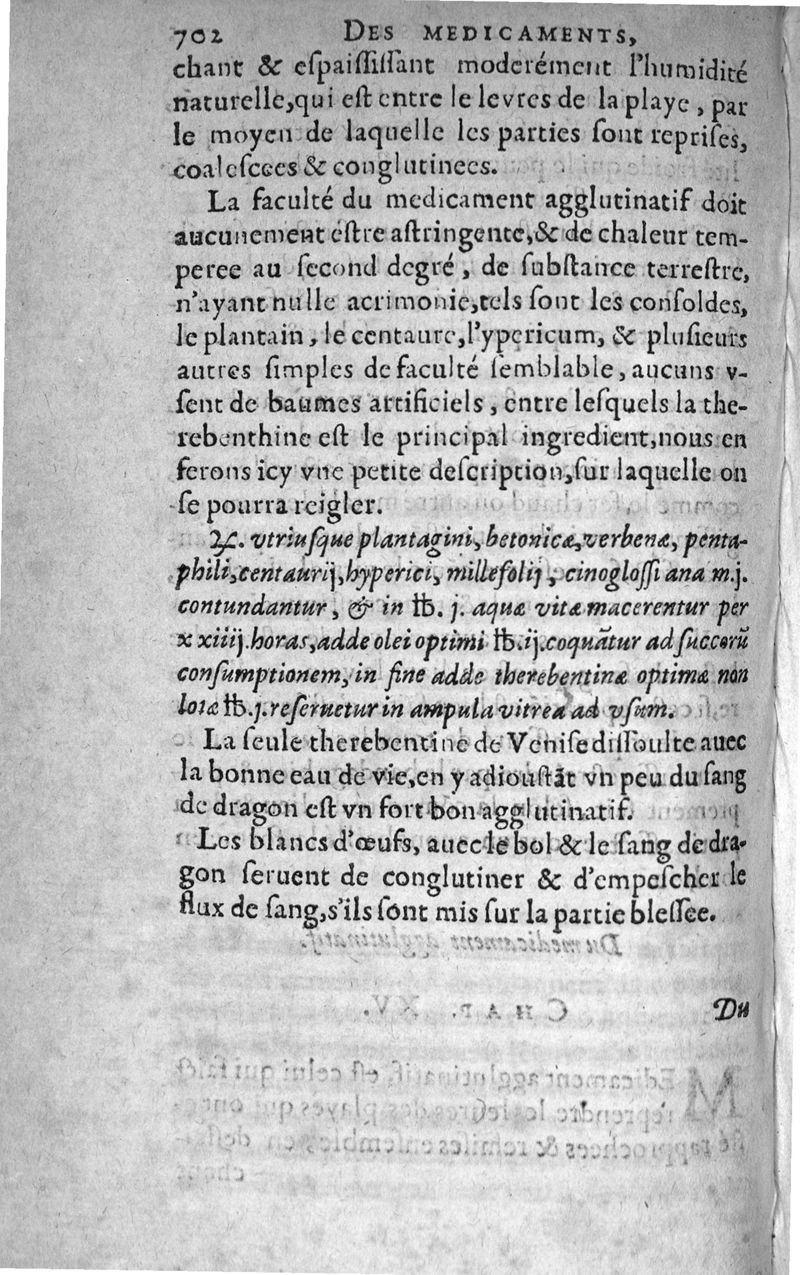 702 DES MEDICAMENTS,
chant & eſpaiſſiſſant moderément l'humidité
naturelle,qui eſt entre le levres de la playe, par
le moyen de laquelle les parties ſont repriſes,
coaleſcees & conglutinees.
La faculté du medicament agglutinatif doit
aucunement eſtre aſtringente,& de chaleur tem-
peree au ſecond degré, de ſubſtance terreſtre,
n'ayant nulle acrimonie,tels ſont les conſoldes,
le plantain, le centaure,l'ypericum, & pluſieurs
autres ſimples de faculté ſemblable, aucuns v-
ſent de baumes artificiels, entre leſquels la the-
rebenthine eſt le principal ingredient,nous en
ferons icy vne petite deſcription,ſur laquelle on
ſe pourra reigler.
♃. vtriuſque plantagini, betonicæ,verbenæ, penta-
phili,centaurij,hyperici, millefolij, cinogloſſi ana m.j.
contundantur, & in ℔. j. aquæ vitæ macerentur per
xxiiij.horas,adde olei optimi ℔.ij.coquãtur ad ſuccorũ
conſumptionem,in fine adde therebentinæ optimæ non
lotæ ℔.j.reſeruetur in ampula vitrea ad vſum.
La ſeule therebentine de Veniſe diſſoulte auec
la bonne eau de vie,en y adiouſtãt vn peu du ſang
de dragon eſt vn fort bon agglutinatif.
Les blancs d'œufs, auec le bol & le ſang de dra-
gon ſeruent de conglutiner & d'empeſcher le
flux de ſang,s'ils ſont mis ſur la partie bleſſee.
Du